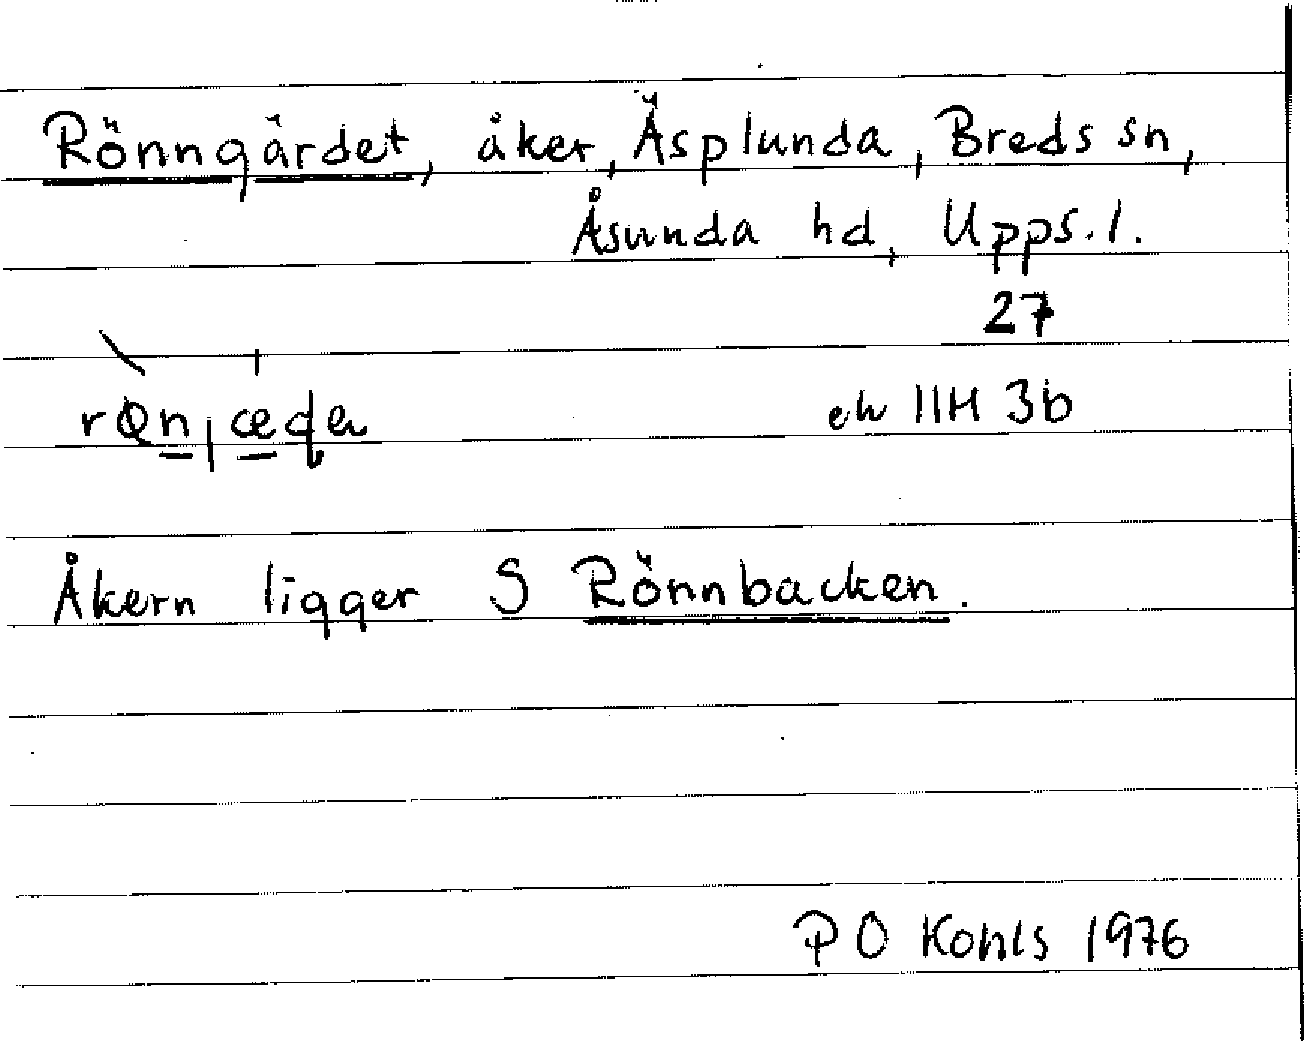 Rönngärdet, åker, Äsplunda, Breds sn,
Åsunda hd, Upps. l.
27
ek 11H 3b
Åkern ligger S Rönnbacken.
P O Kohls 1976